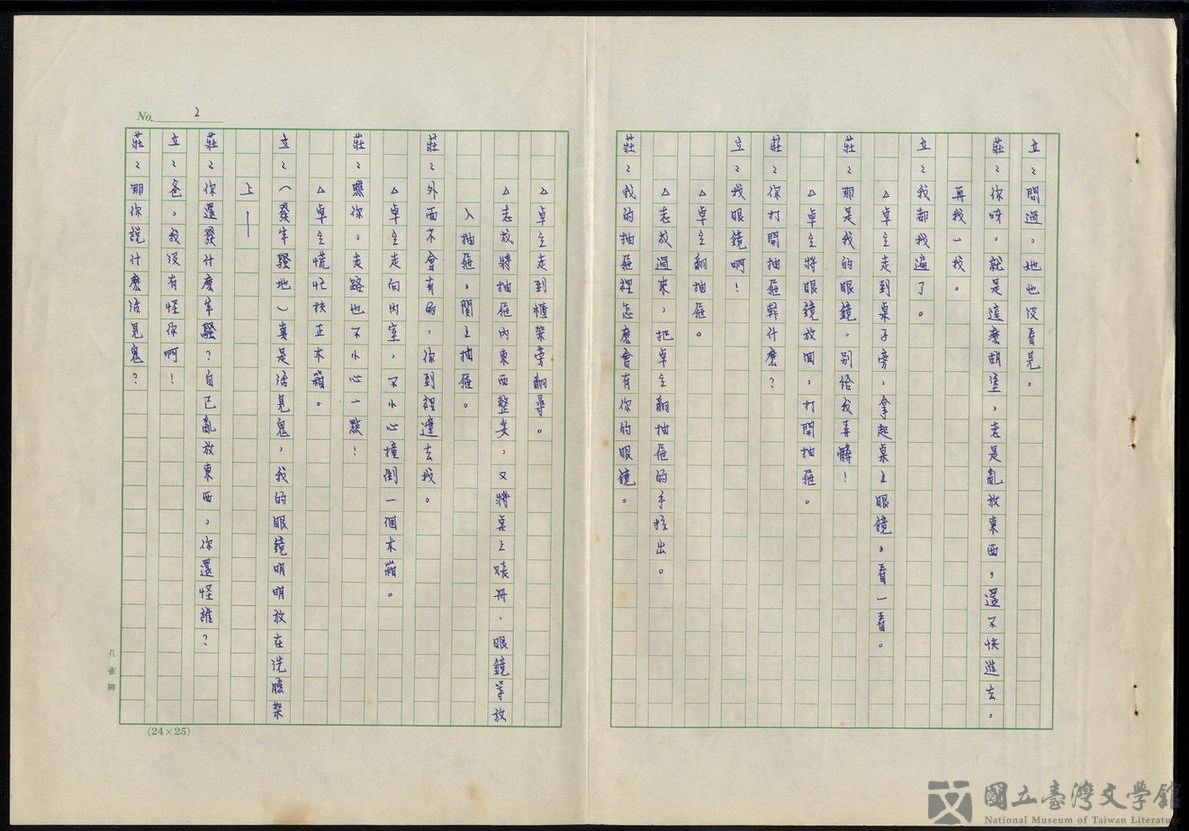 立：問過，她也沒看見。
莊：你呀，就是這麼胡塗，老是亂放東西，還不快進去，
再找一找。
立：我都找遍了。
△卓立走到桌子旁，拿起桌上眼鏡，看一看。
莊：那是我的眼鏡，別給我弄髒！
△卓立將眼鏡放回，打開抽屜。
莊：你打開抽屜幹什麼？
立：找眼鏡啊！
△卓立翻抽屜。
△志放過來，把卓立翻抽屜的手拉出。
莊：我的抽屜裡怎麼會有你的眼鏡。
No. 2
△卓立走到櫃架旁翻尋。
△志放將抽屜內東西整妥，又將桌上賬冊、眼鏡等放
入抽屜。關上抽屜。
莊：外面不會有的，你到裡邊去找。
△卓立走向內室，不小心撞倒一個木箱。
莊：瞧你，走路也不小心一點！
△卓立慌忙扶正木箱。
立：（發牢騷地）真是活見鬼，我的眼鏡明明放在洗臉架
上——
莊：你還發什麼牢騷？自己亂放東西，你還怪誰？
立：爸，我沒有怪你啊！
莊：那你說什麼活見鬼？
孔雀牌
(24×25)
國立臺灣文學館
National Museum of Taiwan Literature